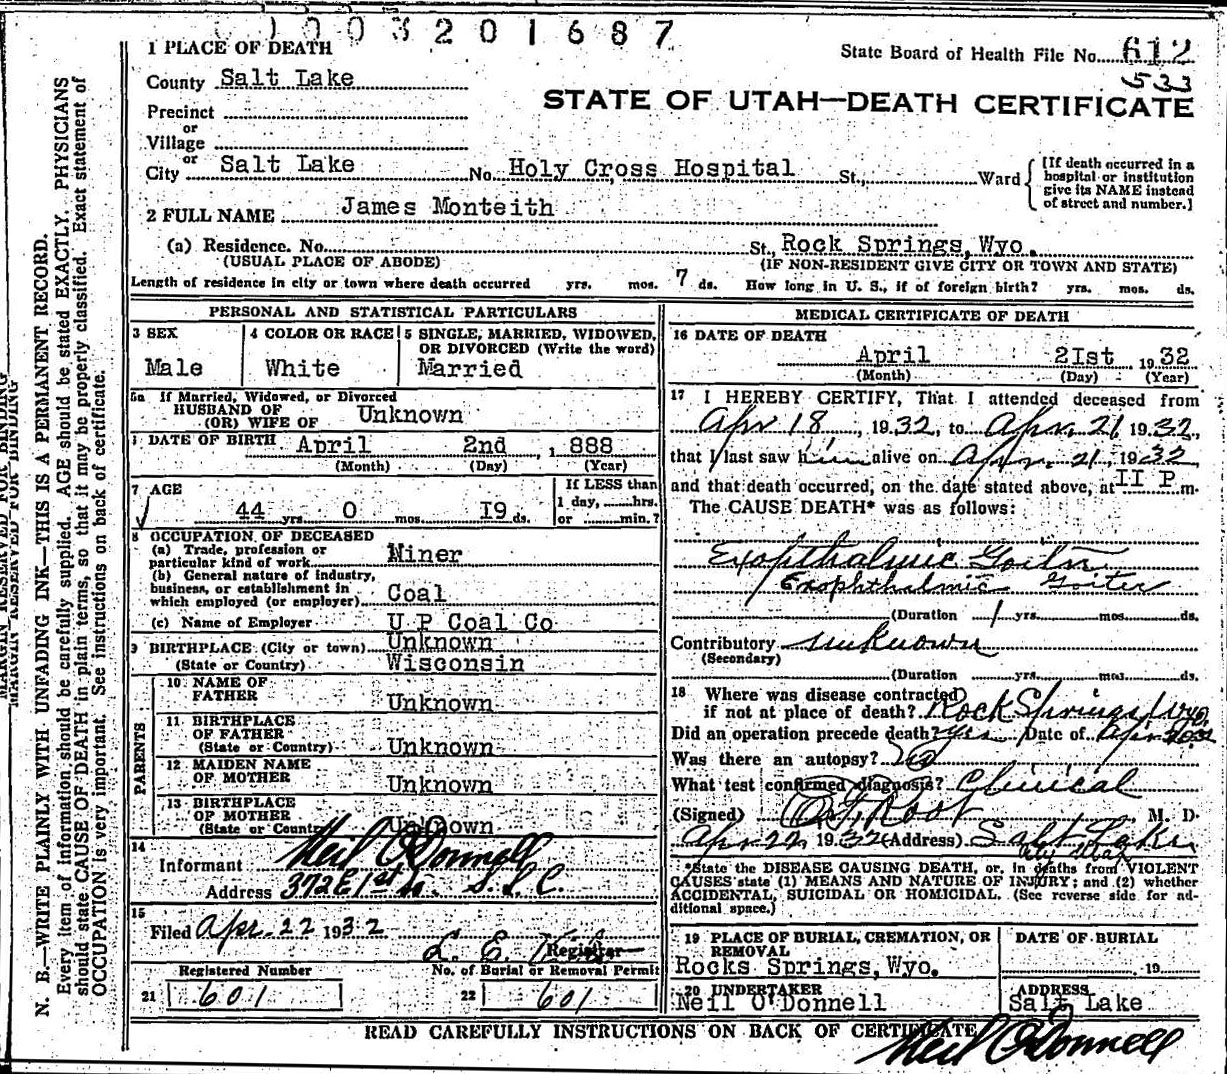 1003201687
1 PLACE OF DEATH
State Board of Health File No. 612
533
County Salt Lake
STATE OF UTAH—DEATH CERTIFICATE
Precinct
or
Village
or
City Salt Lake No. Holy Cross Hospital St., Ward
[If death occurred in a
hospital or institution
give its NAME instead
of street and number.]
2 FULL NAME James Monteith
(a) Residence. No. St., Rock Springs, Wyo.
(USUAL PLACE OF ABODE) (IF NON-RESIDENT GIVE CITY OR TOWN AND STATE)
Length of residence in city or town where death occurred yrs. mos. 7 ds. How long in U. S., if of foreign birth? yrs. mos. ds.
PERSONAL AND STATISTICAL PARTICULARS
3 SEX
Male
4 COLOR OR RACE
White
5 SINGLE, MARRIED, WIDOWED,
OR DIVORCED (Write the word)
Married
5a If Married, Widowed, or Divorced
HUSBAND OF
(OR) WIFE OF Unknown
DATE OF BIRTH April 2nd, 1888
(Month) (Day) (Year)
7 AGE
44 yrs. 0 mos. I9 ds.
If LESS than
1 day, hrs.
or min.?
8 OCCUPATION OF DECEASED
(a) Trade, profession or
particular kind of work Miner
(b) General nature of industry,
business, or establishment in
which employed (or employer) Coal
(c) Name of Employer U P Coal Co
9 BIRTHPLACE (City or town) Unknown
(State or Country) Wisconsin
PARENTS
10 NAME OF
FATHER Unknown
11 BIRTHPLACE
OF FATHER
(State or Country) Unknown
12 MAIDEN NAME
OF MOTHER Unknown
13 BIRTHPLACE
OF MOTHER
(State or Country) Unknown
14
Informant Neil O'Donnell
Address 372 E 1st So. S.L.C.
15
Filed Apr. 22 1932
L. E.
Registrar
Registered Number No. of Burial or Removal Permit
21 601 22 601
MEDICAL CERTIFICATE OF DEATH
16 DATE OF DEATH
April 2Ist, 1932
(Month) (Day) (Year)
17 I HEREBY CERTIFY, That I attended deceased from
Apr 18, 1932, to Apr. 21, 1932,
that I last saw him alive on Apr. 21, 1932
and that death occurred, on the date stated above, at II P m.
The CAUSE DEATH* was as follows:
Exopthalmic Goiter
Exophthalmic Goiter
(Duration 1 yrs. mos. ds.
Contributory unknown
(Secondary)
(Duration yrs. mos. ds.
18 Where was disease contracted
if not at place of death? Rock Springs Wyo.
Did an operation precede death? yes Date of
Was there an autopsy? No
What test confirmed diagnosis? Clinical
(Signed) Root, M. D.
Apr 22, 1932 (Address) Salt Lake
City Utah
*State the DISEASE CAUSING DEATH, or, in deaths from VIOLENT
CAUSES state (1) MEANS AND NATURE OF INJURY; and (2) whether
ACCIDENTAL, SUICIDAL OR HOMICIDAL. (See reverse side for ad-
ditional space.)
19 PLACE OF BURIAL, CREMATION, OR
REMOVAL
Rocks Springs, Wyo.
DATE OF BURIAL
, 19
20 UNDERTAKER
Neil O'Donnell
ADDRESS
Salt Lake
READ CAREFULLY INSTRUCTIONS ON BACK OF CERTIFICATE
Neil O'Donnell
MARGIN RESERVED FOR BINDING
N. B.—WRITE PLAINLY WITH UNFADING INK—THIS IS A PERMANENT RECORD.
Every item of information should be carefully supplied. AGE should be stated EXACTLY. PHYSICIANS
should state CAUSE OF DEATH in plain terms, so that it may be properly classified. Exact statement of
OCCUPATION is very important. See instructions on back of certificate.